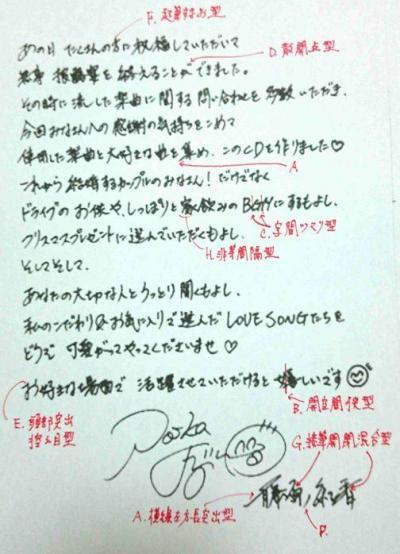 F. 起筆すなお型
あの日 たくさんの方に祝福していただいて
D. 散開点型
無事 披露宴を終えることができました。
その時に流した楽曲に関する問い合わせを多数いただき、
今回みなさんへの感謝の気持ちをこめて
使用した楽曲と大好きな曲を集め、このCDを作りました♡
A
これから結婚するカップルのみなさん！だけでなく
ドライブのお供や、しっぽりと家飲みのBGMにするもよし、
C. 字間ツマリ型
クリスマスプレゼントに選んでいただくもよし、
H. 非等間隔型
そしてそして、
あなたの大切な人とうっとり聞くもよし、
私のこだわり&お気に入りで選んだ LOVE SONGたちを
どうぞ 可愛がってやってくださいませ♡
お好きな場面で 活躍させていただけると 嬉しいです
E. 頭部突出控え目型
B. 開空間狭型
G. 接筆開閉混合型
A. 横線左方長突出型
藤原 紀香